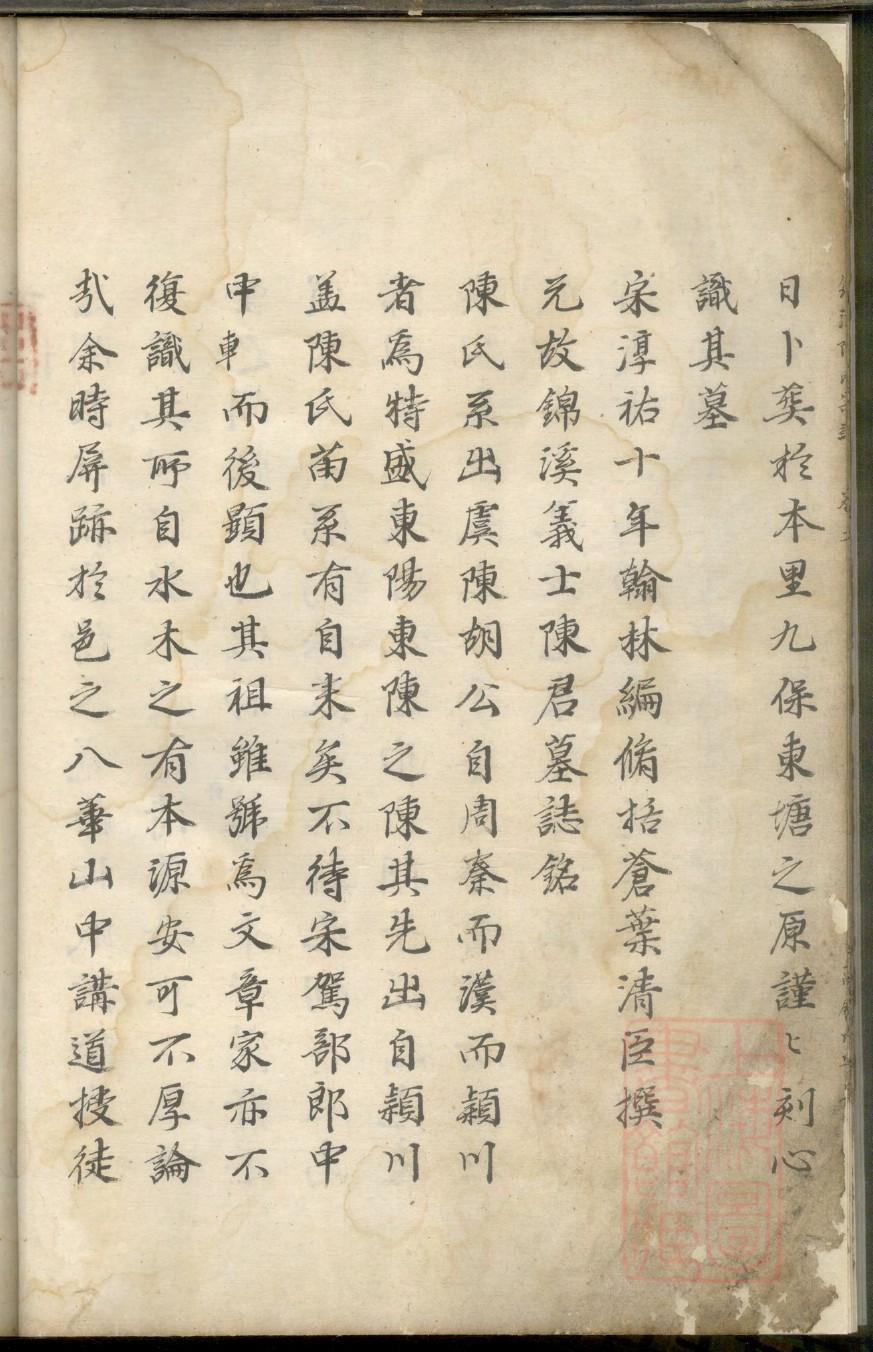 日卜葬於本里九保東塘之原謹〻刻心
識其墓
宋淳祐十年翰林編脩括蒼葉清臣撰
元故錦溪義士陳君墓誌銘
陳氏系出虞陳胡公自周秦而漢而潁川
者爲特盛東陽東陳之陳其先出自潁川
盖陳氏喬系有自来矣不待宋駕部郎中
申車而後顕也其祖雖號爲文章家亦不
復識其所自水木之有本源安可不厚論
哉余時屏跡於邑之八華山中講道授徒
上海圖書館藏